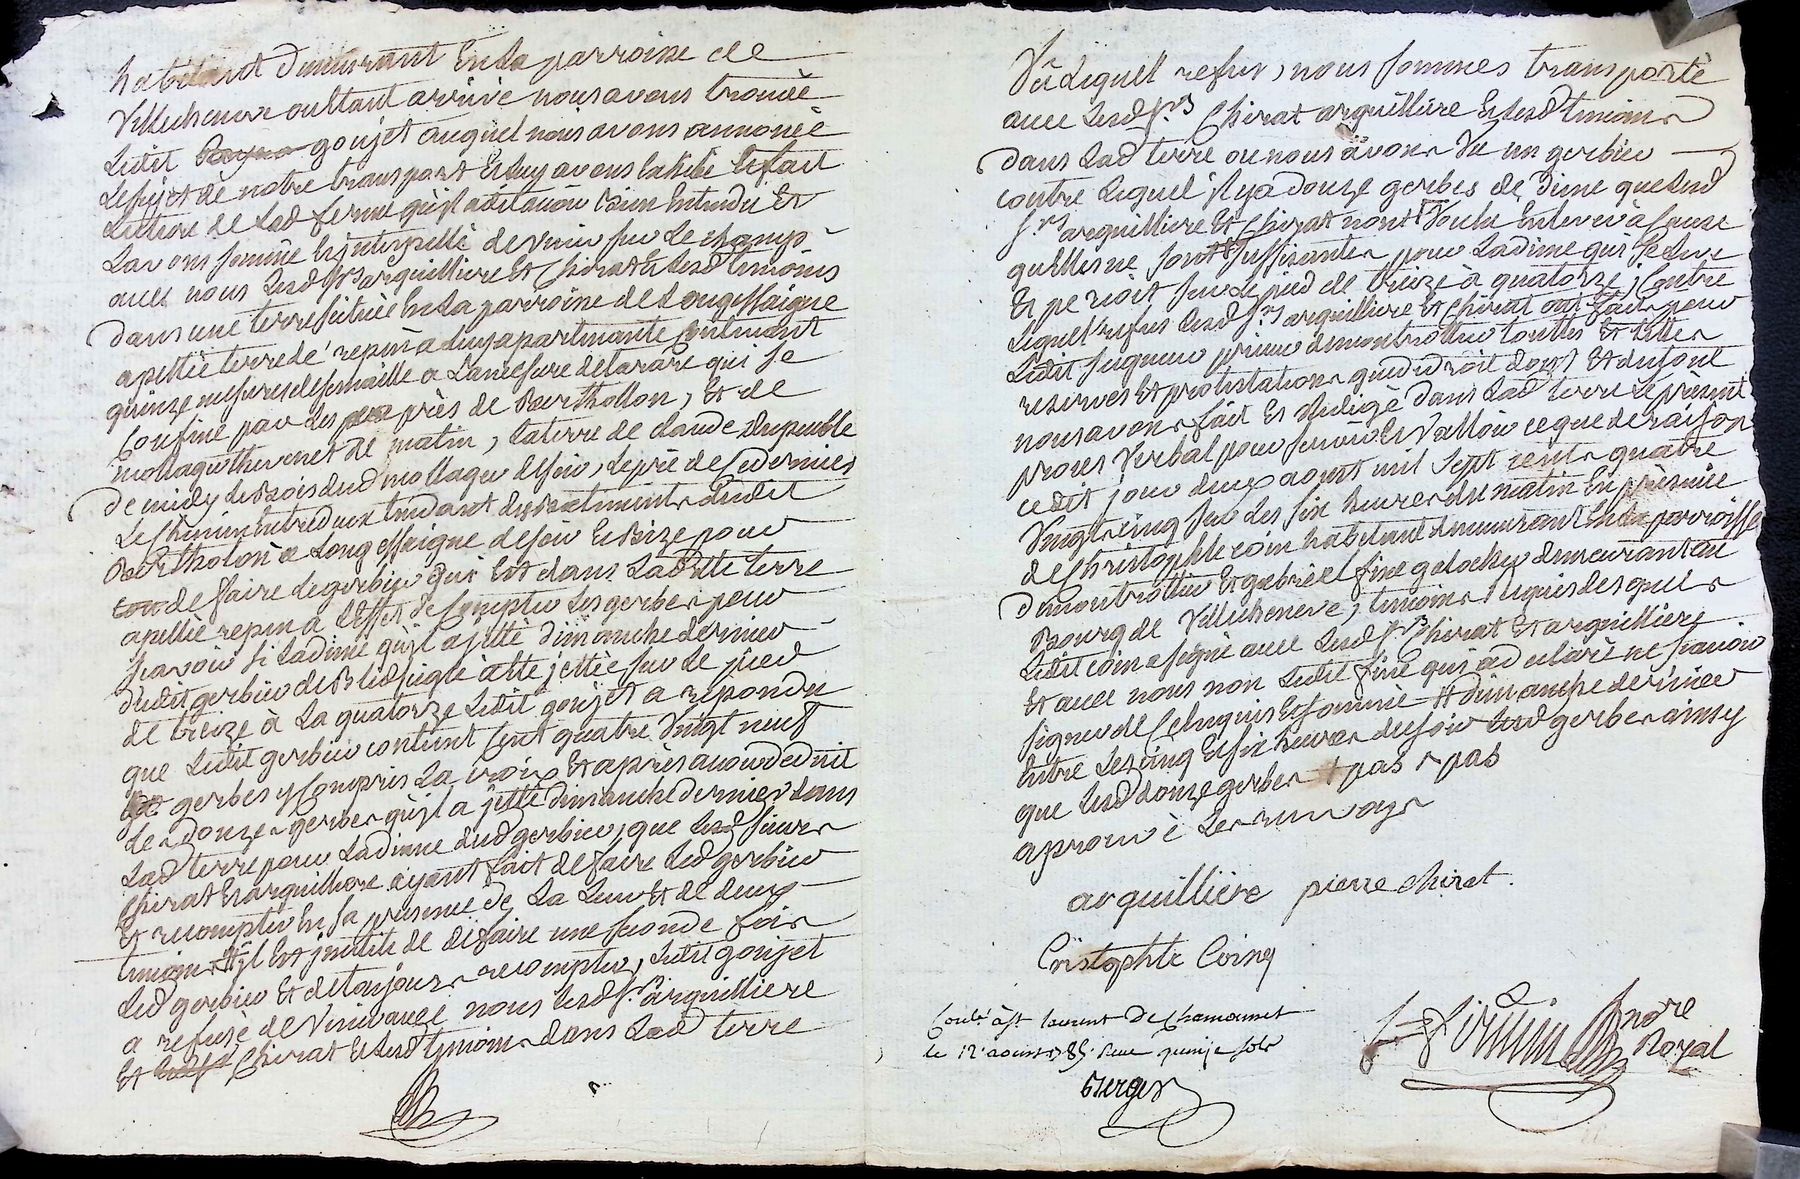 habitant demeurant En La parroisse de
Villecheneve ou Etant arrivé nous avons trouvé
Ledit goujet auquel nous avons annoncé
Le sujet de notre transport Et luy avons Le fait
Lecture de Lad ferme qu'il a dit avoir Bien Entendu Et
L'avons sommé Et interpellé de venir sur Le champ
avec nous Lesd Srs arquilliere Et Chirat Et Lesd temoins
Dans une terre située En La parroisse de Longessaigne
apellée terre de repin a luy apartenante Contenant
quinze mesures de semaille a La mesure de tarare qui se
Confine par Les près de Berthollon, Et de
mollague thevenet de matin, La terre de claude
de midy Le Bois dud mollague de soir, Le pré de Ce dernier
Le Chemin Entredeux tendant des Batiments dudit
Bertholon a Longessaigne de soir Et Bize pour
defaire Le gerbier qui Est dans Laditte terre
apellée repin a L'effet de Compter Les gerbes pour
sçavoir si La dime qu'il a jetté dimanche dernier
dudit gerbier de Bled seigle a été jettée sur Le pied
de treize à La quatorze Ledit goujet a repondu
que Ledit gerbier contient Cent quatre Vingt neuf
gerbes y Compris La croix Et après avoir deduit
Les douze gerbes qu'il a jetté dimanche dernier dans
Lad terre pour La dime dud gerbier, que Lesd sieurs
Chirat Et arquilliere ayant fait defaire Led gerbier
Et recompter En sa presence de La Leur Et de deux
temoins il Est inutile de defaire une seconde fois
Led gerbier Et de toujours recompter, Ledit goujet
a refusé de Venir avec nous Lesd Srs arquilliere
Et Chirat Et Lesd temoins dans Lad terre
Vû Lequel refus, nous sommes transporté
avec Lesd Srs Chirat arquilliere Et Lesd temoins
dans Lad terre ou nous avons Vu un gerbier
contre Lequel il y a Douze gerbes de Dime que Lesd
Srs arquilliere Et Chirat n'ont Voulu Enlever à Cause
qu'Elles ne sont suffisantes pour La dime qui se Leve
Et perçoit sur Le pied de treize à quatorze; Contre
Lequel refus Lesd Srs arquilliere Et Chirat ont fait pour
Ledit seigneur prieur de montrottier touttes Et telles
reserves Et protestations que de droit dont Et du tout
nous avons fait Et Redigé dans Lad terre Le présent
procès Verbal pour servir Et Valloir ce que de raison
cedit jour deux aoust mil sept cents quatre
Vingt cinq sur Les six heures du matin En présence
de Christophle coin habitant demeurant En La parroisse
de montrottier Et gabriel fine galocher demeurant au
Bourg de Villecheneve, temoins Requis desquels
Ledit coin a signé avec Lesd Srs Chirat Et arquilliere
Et avec nous non Ledit fine qui a declaré ne sçavoir
signer de Ce Enquis Et sommé # dimanche dernier
Entre Les cinq Et six heures du soir Lesd gerbes ainsy
que Lesd douze gerbes pas pas
aprouvé Les renvoys
arquilliere pierre chirat.
Cristophle Coing
Conlé à St laurent De Chamousset
le 12 aoust 1785. Reçu quinze sols
Berger
Royal